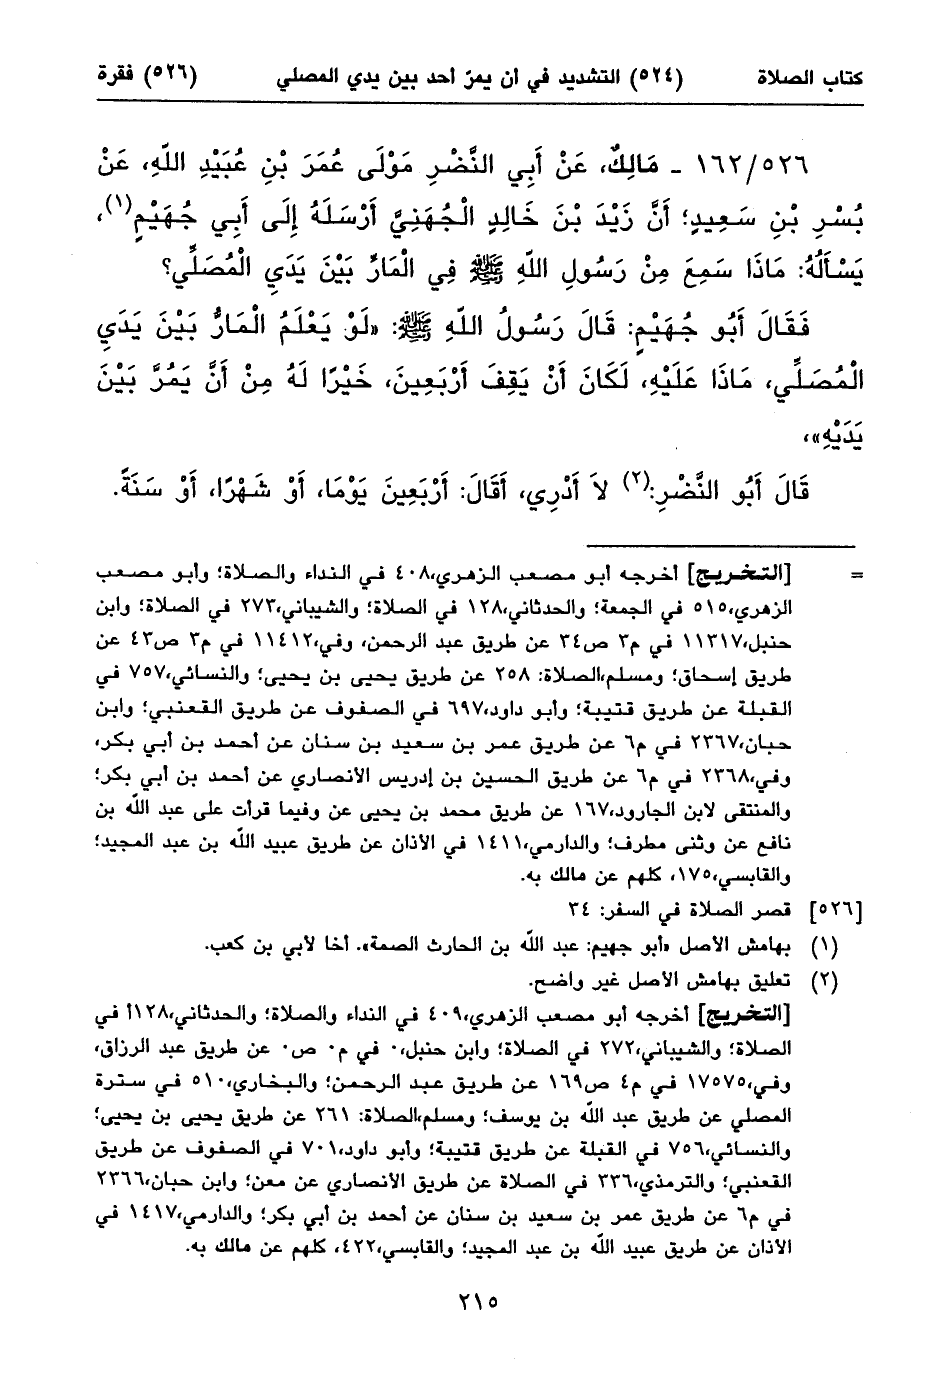 كتاب الصلاة (٥٢٤) التشديد في أن يمرّ أحد بين يدي المصلي (٥٢٦) فقرة
١٦٢/٥٢٦ ـ مَالِكٌ، عَنْ أَبِي النَّضْرِ مَوْلَى عُمَرَ بْنِ عُبَيْدِ اللّهِ، عَنْ
بُسْرِ بْنِ سَعِيدٍ؛ أَنَّ زَيْدَ بْنَ خَالِدٍ الْجُهَنِيَّ أَرْسَلَهُ إِلَى أَبِي جُهَيْمٍ(١)،
يَسْأَلُهُ: مَاذَا سَمِعَ مِنْ رَسُولِ اللّهِ ﷺ فِي الْمَارِّ بَيْنَ يَدَيِ الْمُصَلِّي؟
فَقَالَ أَبُو جُهَيْمٍ: قَالَ رَسُولُ اللّهِ ﷺ: «لَوْ يَعْلَمُ الْمَارُّ بَيْنَ يَدَيِ
الْمُصَلِّي، مَاذَا عَلَيْهِ، لَكَانَ أَنْ يَقِفَ أَرْبَعِينَ، خَيْرًا لَهُ مِنْ أَنْ يَمُرَّ بَيْنَ
يَدَيْهِ»،
قَالَ أَبُو النَّضْرِ:(٢) لاَ أَدْرِي، أَقَالَ: أَرْبَعِينَ يَوْمًا، أَوْ شَهْرًا، أَوْ سَنَةً.
= [التخريج] أخرجه أبو مصعب الزهري،٤٠٨ في النداء والصلاة؛ وأبو مصعب
الزهري،٥١٥ في الجمعة؛ والحدثاني،١٢٨ في الصلاة؛ والشيباني،٢٧٣ في الصلاة؛ وابن
حنبل،١١٣١٧ في م٣ ص٣٤ عن طريق عبد الرحمن، وفي،١١٤١٢ في م٣ ص٤٣ عن
طريق إسحاق؛ ومسلم،الصلاة: ٢٥٨ عن طريق يحيى بن يحيى؛ والنسائي،٧٥٧ في
القبلة عن طريق قتيبة؛ وأبو داود،٦٩٧ في الصفوف عن طريق القعنبي؛ وابن
حبان،٢٣٦٧ في م٦ عن طريق عمر بن سعيد بن سنان عن أحمد بن أبي بكر،
وفي،٢٣٦٨ في م٦ عن طريق الحسين بن إدريس الأنصاري عن أحمد بن أبي بكر؛
والمنتقى لابن الجارود،١٦٧ عن طريق محمد بن يحيى عن وفيما قرأت على عبد الله بن
نافع عن وثنى مطرف؛ والدارمي،١٤١١ في الأذان عن طريق عبيد الله بن عبد المجيد؛
والقابسي،١٧٥، كلهم عن مالك به.
[٥٢٦] قصر الصلاة في السفر: ٣٤
(١) بهامش الأصل «أبو جهيم: عبد الله بن الحارث الصمة». أخا لأبي بن كعب.
(٢) تعليق بهامش الأصل غير واضح.
[التخريج] أخرجه أبو مصعب الزهري،٤٠٩ في النداء والصلاة؛ والحدثاني،١٢٨أ في
الصلاة؛ والشيباني،٢٧٢ في الصلاة؛ وابن حنبل،٠ في م٠ ص٠ عن طريق عبد الرزاق،
وفي،١٧٥٧٥ في م٤ ص١٦٩ عن طريق عبد الرحمن؛ والبخاري،٥١٠ في سترة
المصلي عن طريق عبد الله بن يوسف؛ ومسلم،الصلاة: ٢٦١ عن طريق يحيى بن يحيى؛
والنسائي،٧٥٦ في القبلة عن طريق قتيبة؛ وأبو داود،٧٠١ في الصفوف عن طريق
القعنبي؛ والترمذي،٣٣٦ في الصلاة عن طريق الأنصاري عن معن؛ وابن حبان،٢٣٦٦
في م٦ عن طريق عمر بن سعيد بن سنان عن أحمد بن أبي بكر؛ والدارمي،١٤١٧ في
الأذان عن طريق عبيد الله بن عبد المجيد؛ والقابسي،٤٢٢، كلهم عن مالك به.
٢١٥